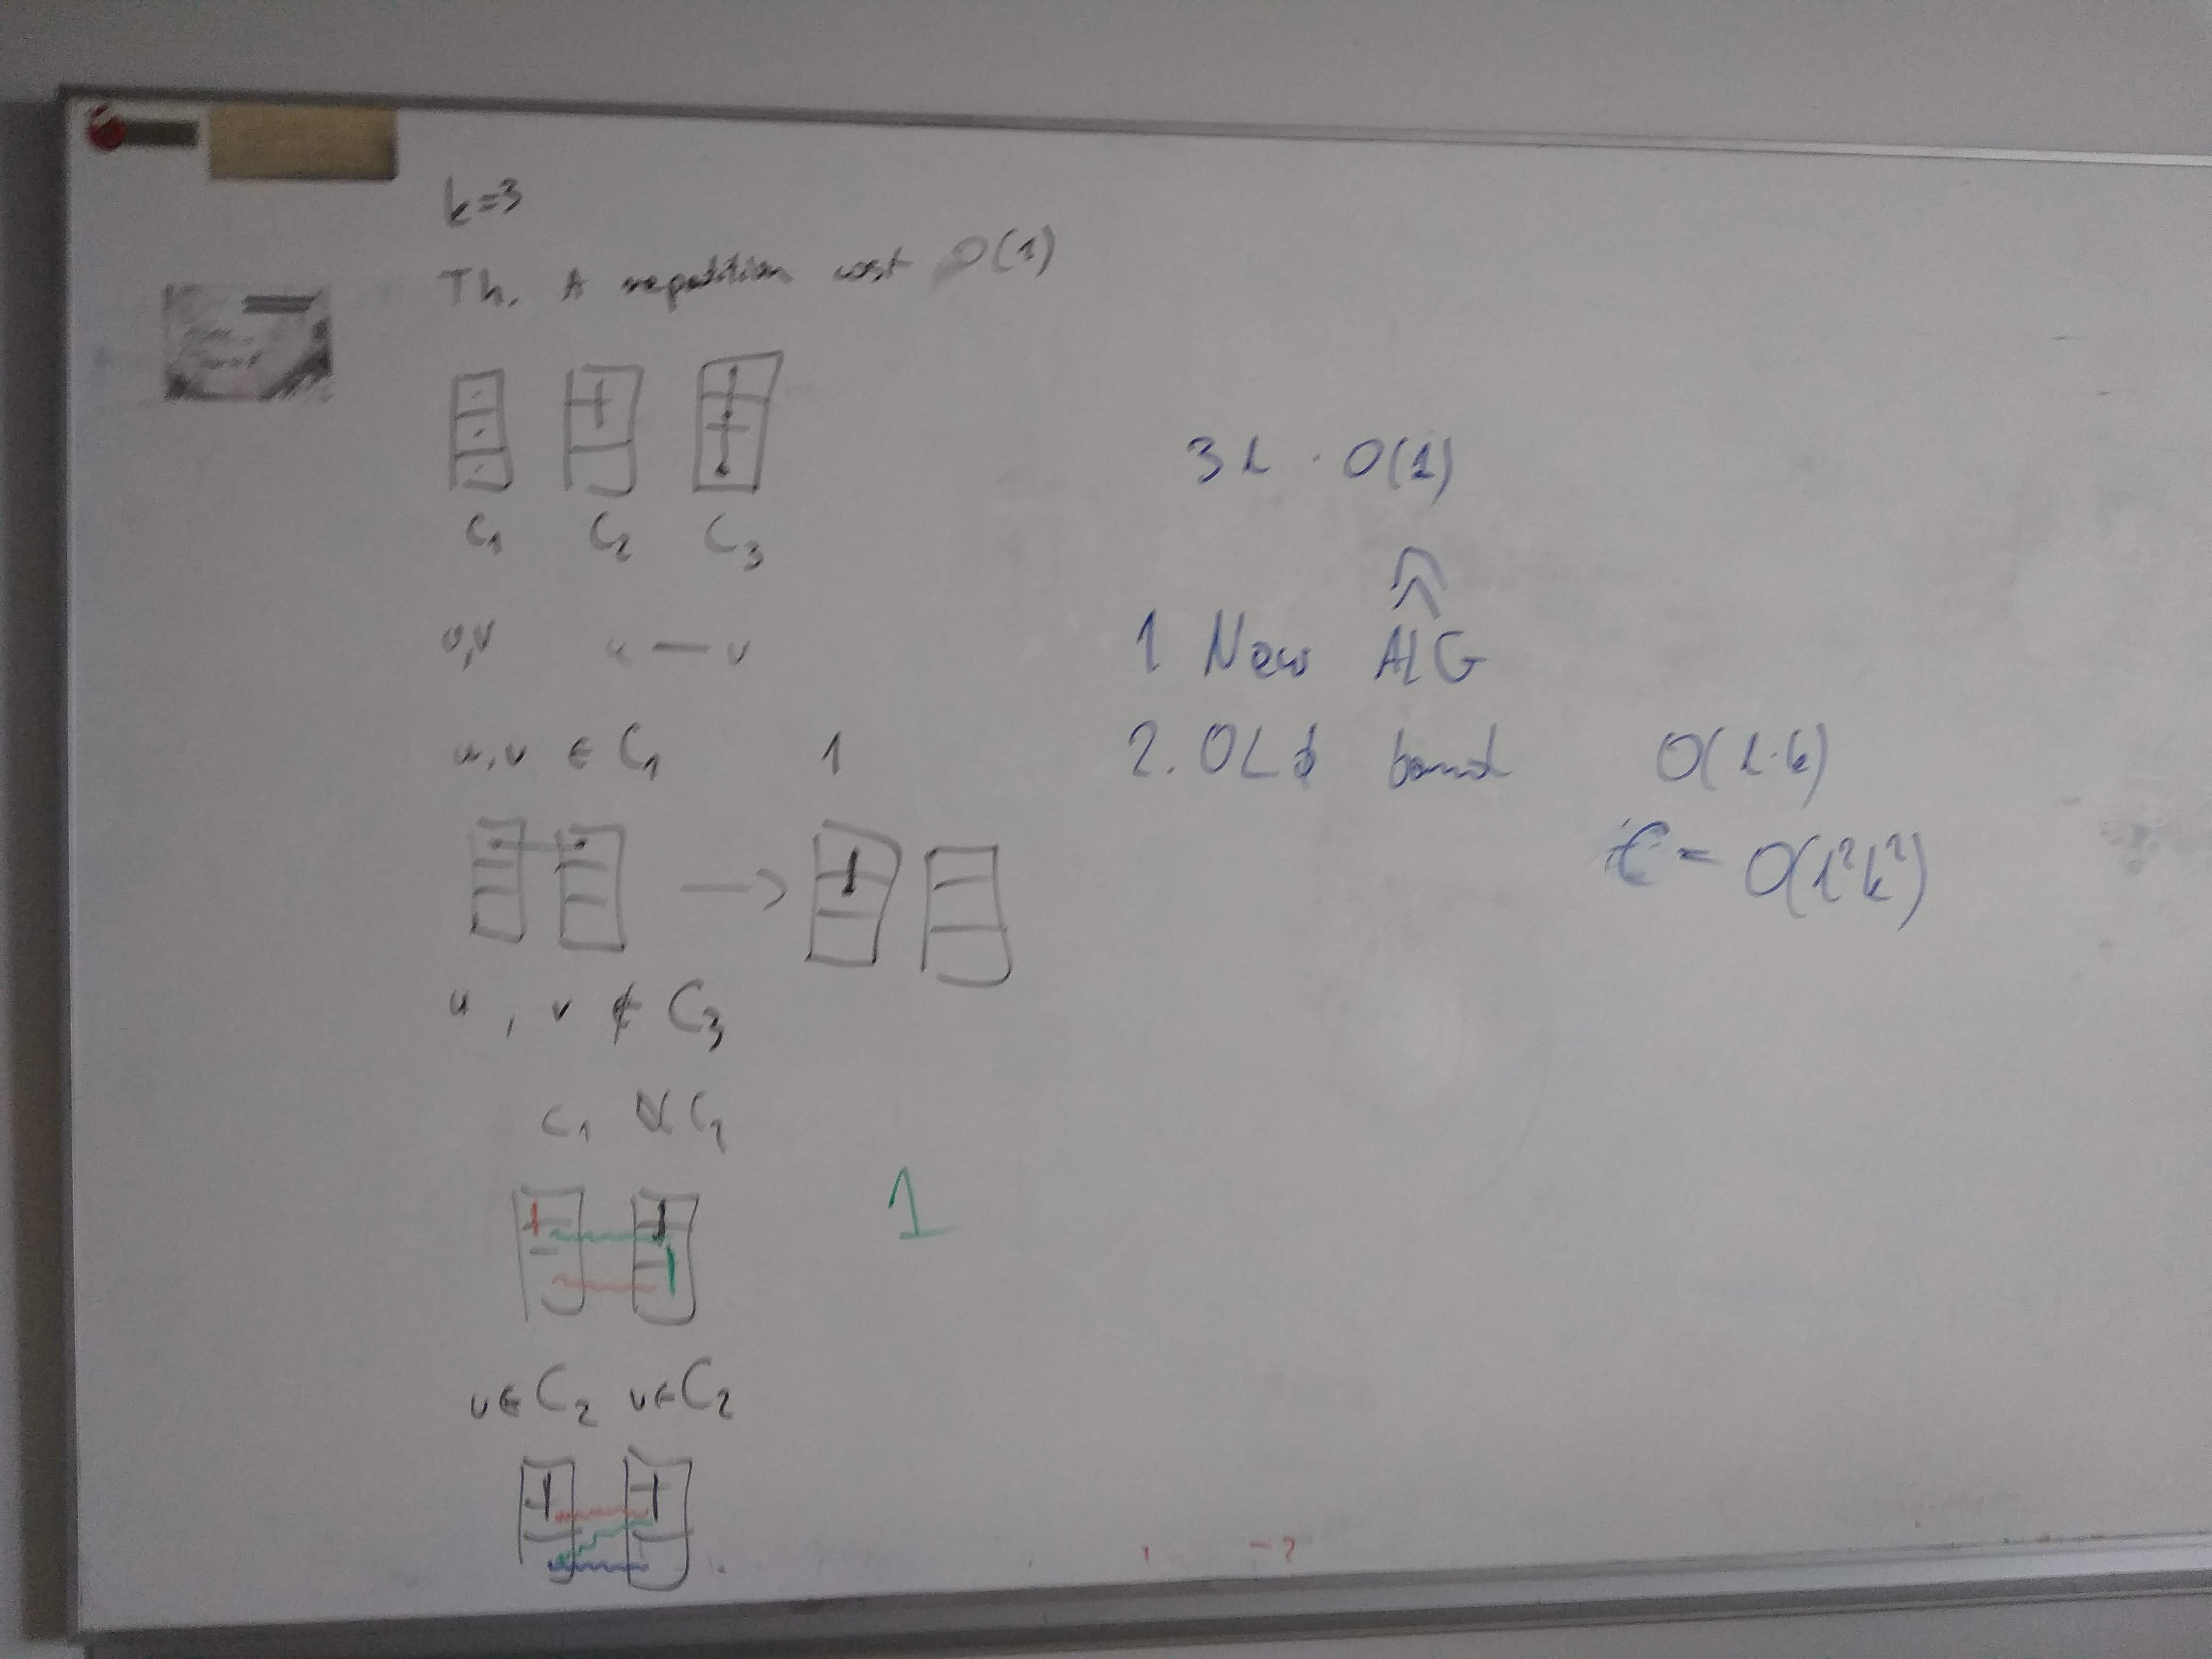 k=3
Th. A repartition cost O(1)
C₁ C₂ C₃
u,v u — v
u,v ∈ C₁ 1
u, v ∉ C₃
C₁ C₂
1
u ∈ C₂ v ∈ C₂
3 L · O(1)
1 New ALG
2. OLd bound O(L·k)
= O(l²k²)